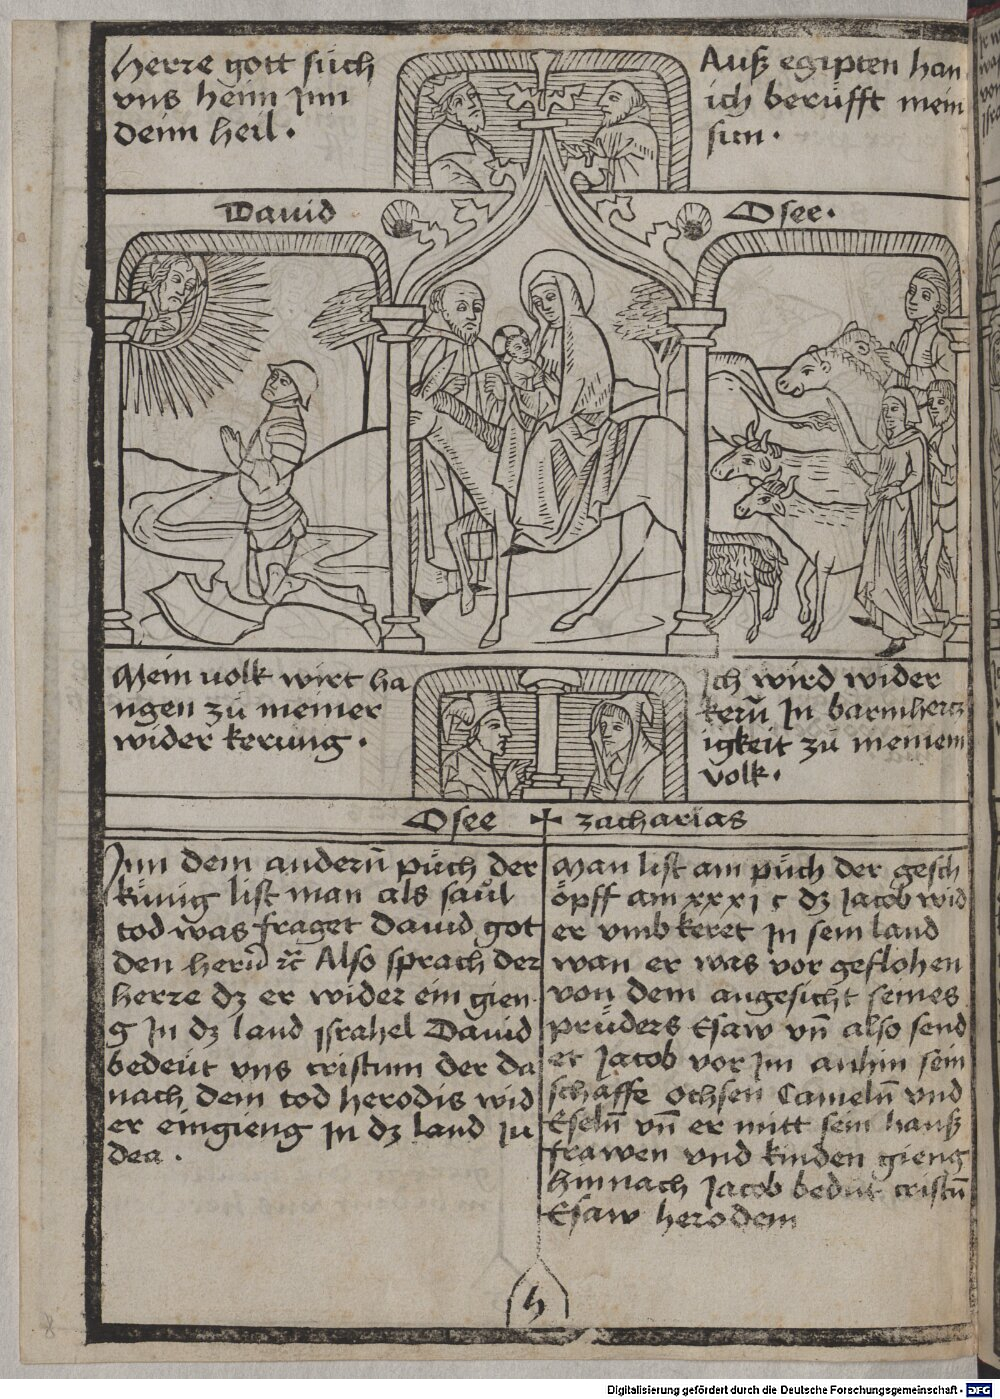 Herre gott such
vns heim Inn
deinn heil .
Auß egipten han
ich berüfft mein
sun .
Dauid
Osee .
Mein volk wirt ha
ngen zů meiner
wider kerung .
Ich wird wider
kerñ In barmhercz
igkeit zů meinem
volk .
Osee ✢ zacharias
Inn dem anderñ půch der
künig list man als saul
tod was fraget dauid got
den herñ ꝛc̄ Also sprach der
herre dz er wider ein gien
g In dz land israhel Dauid
bedeüt vns cristum der da
nach dem tod herodis wid
er eingieng In dz land Ju
dea .
Man list am půch der gesch
öpff am xxxi c dz Jacob wid
er vmb keret In sein land
wan er was vor geflohen
von dem angesicht seines
prüders Esaw vñ also send
et Jacob vor Im anhin sein
schaffe ochsen Camelñ vnd
Eselñ vñ er mitt sein hauß
frawen vnd kinden gieng
hinnach Jacob bedüt cristũ
Esaw herodem
h
8
Digitalisierung gefördert durch die Deutsche Forschungsgemeinschaft - DFG